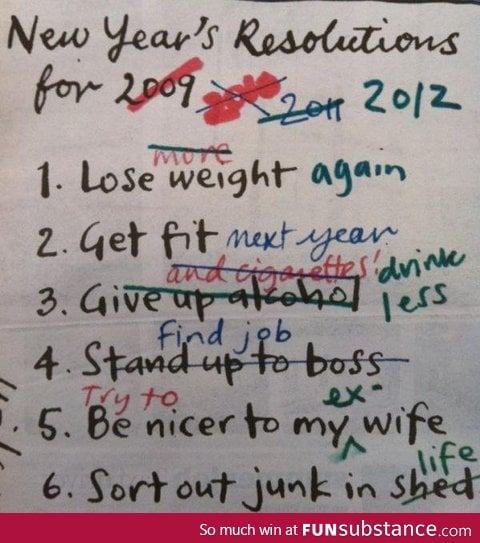 New Year's Resolutions
for 2009 2011 2012
more
1. Lose weight again
2. Get fit next year
and cigarettes! drink
3. Give up alcohol less
find job
4. Stand up to boss
Try to ex-
5. Be nicer to my wife
life
6. Sort out junk in shed
So much win at FUNsubstance.com